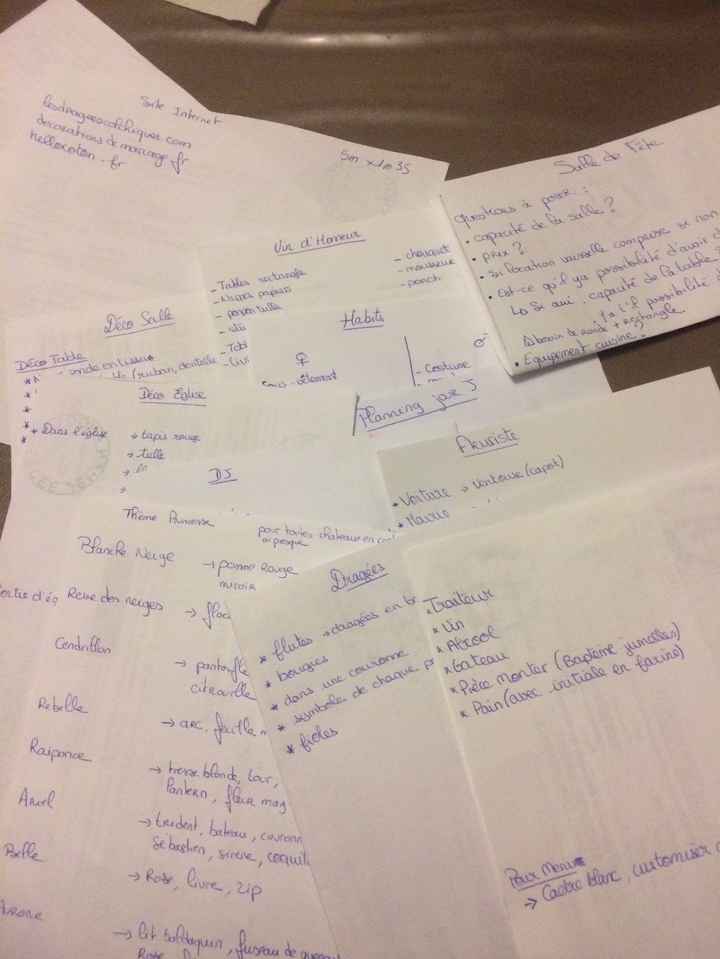 Site Internet
lesdrageescolchiques.com
decorations de mariage.fr
hellocoton.fr
5m x 1m35
Salle de Fête
questions à poser :
• capacité de la salle ?
• prix ?
• si location vaisselle comprise si non
• Est-ce qu'il y a possibilité d'avoir
↳ Si oui, capacité de la table
+ rectangle
• Equipement cuisine ?
Vin d'Honneur
- Tables rectangle
- Nappes papiers
- chouquet
- mousseux
- punch
Déco Salle
Déco Table
Habits
♀
♂
- Costume
Déco Eglise
* Dans l'église
→ tapis rouge
→ tulle
Planning jour J
Fleuriste
• Voiture → ventouse (capot)
• Mairie
DJ
Thème Princesse
pour toutes chateau en
Blanche Neige
→ pomme Rouge
miroir
Reine des neiges
→ floc
Cendrillon
→ pantoufle
citrouille
Rebelle
→ arc, feuille
Raiponce
→ tresse blonde, tour,
lantern, fleur mag
Ariel
→ trident, bateau, couronn
Sébastien, sirène, coquil
Belle
→ Rose, livre, zip
Aurore
→ lit baldaquin, fuseau de
Rose
Dragées
* flutes → dragées en
* bougies
* dans une couronne
* symbole de chaque
* fioles
* Traiteur
* Vin
* Alcool
* Gateau
* Pièce monter (Baptème jumelles)
* Pain (avec initiale en farine)
Pour Menu
→ Cadre blanc, customiser